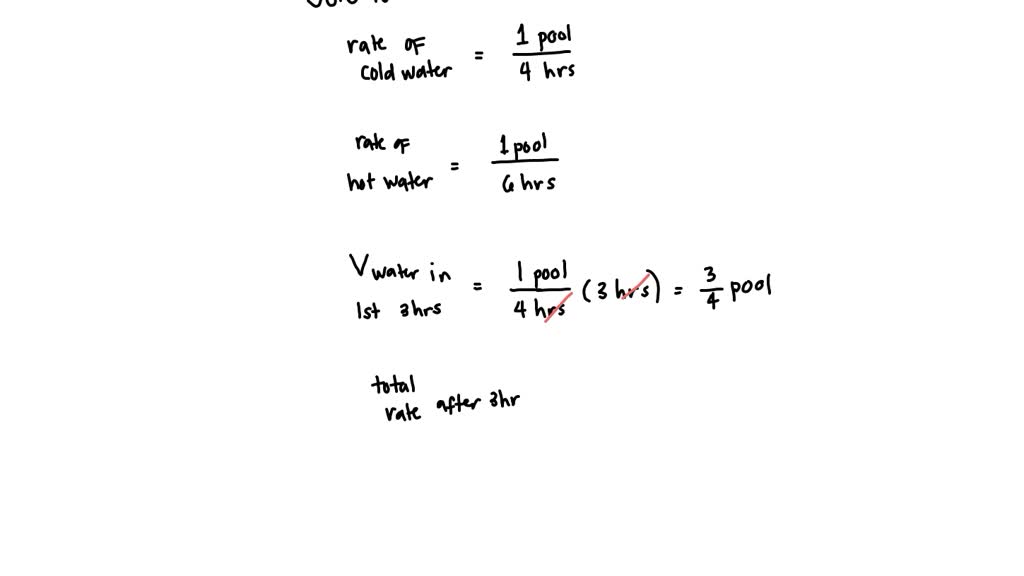 rate of
cold water = 1 pool / 4 hrs
rate of
hot water = 1 pool / 6 hrs
V water in
1st 3hrs = 1 pool / 4 hrs (3 hrs) = 3/4 pool
total
rate after 3hr